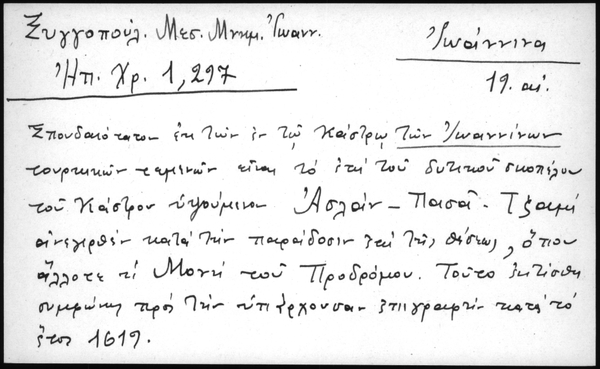 Ξυγγοπούλ. Μεσ. Μνημ. Ἰωανν.
Ἠπ. Χρ. 1, 297
Ἰωάννινα
19. αἰ.
Σπουδαιότατον ἐκ τῶν ἐν τῷ Κάστρῳ τῶν Ἰωαννίνων
τουρκικῶν τεμενῶν εἶναι τό ἐπί τοῦ δυτικοῦ σκοπέλου
τοῦ Κάστρου ὑψούμενον Ἀσλάν - Πασᾶ - Τζαμί
ἀνεγερθέν κατά τήν παράδοσιν ἐπί τῆς θέσεως, ὅπου
ἄλλοτε ἡ Μονή τοῦ Προδρόμου. Τοῦτο ἐκτίσθη
συμφώνως πρός τήν ὑπάρχουσαν ἐπιγραφήν κατά τό
ἔτος 1619.